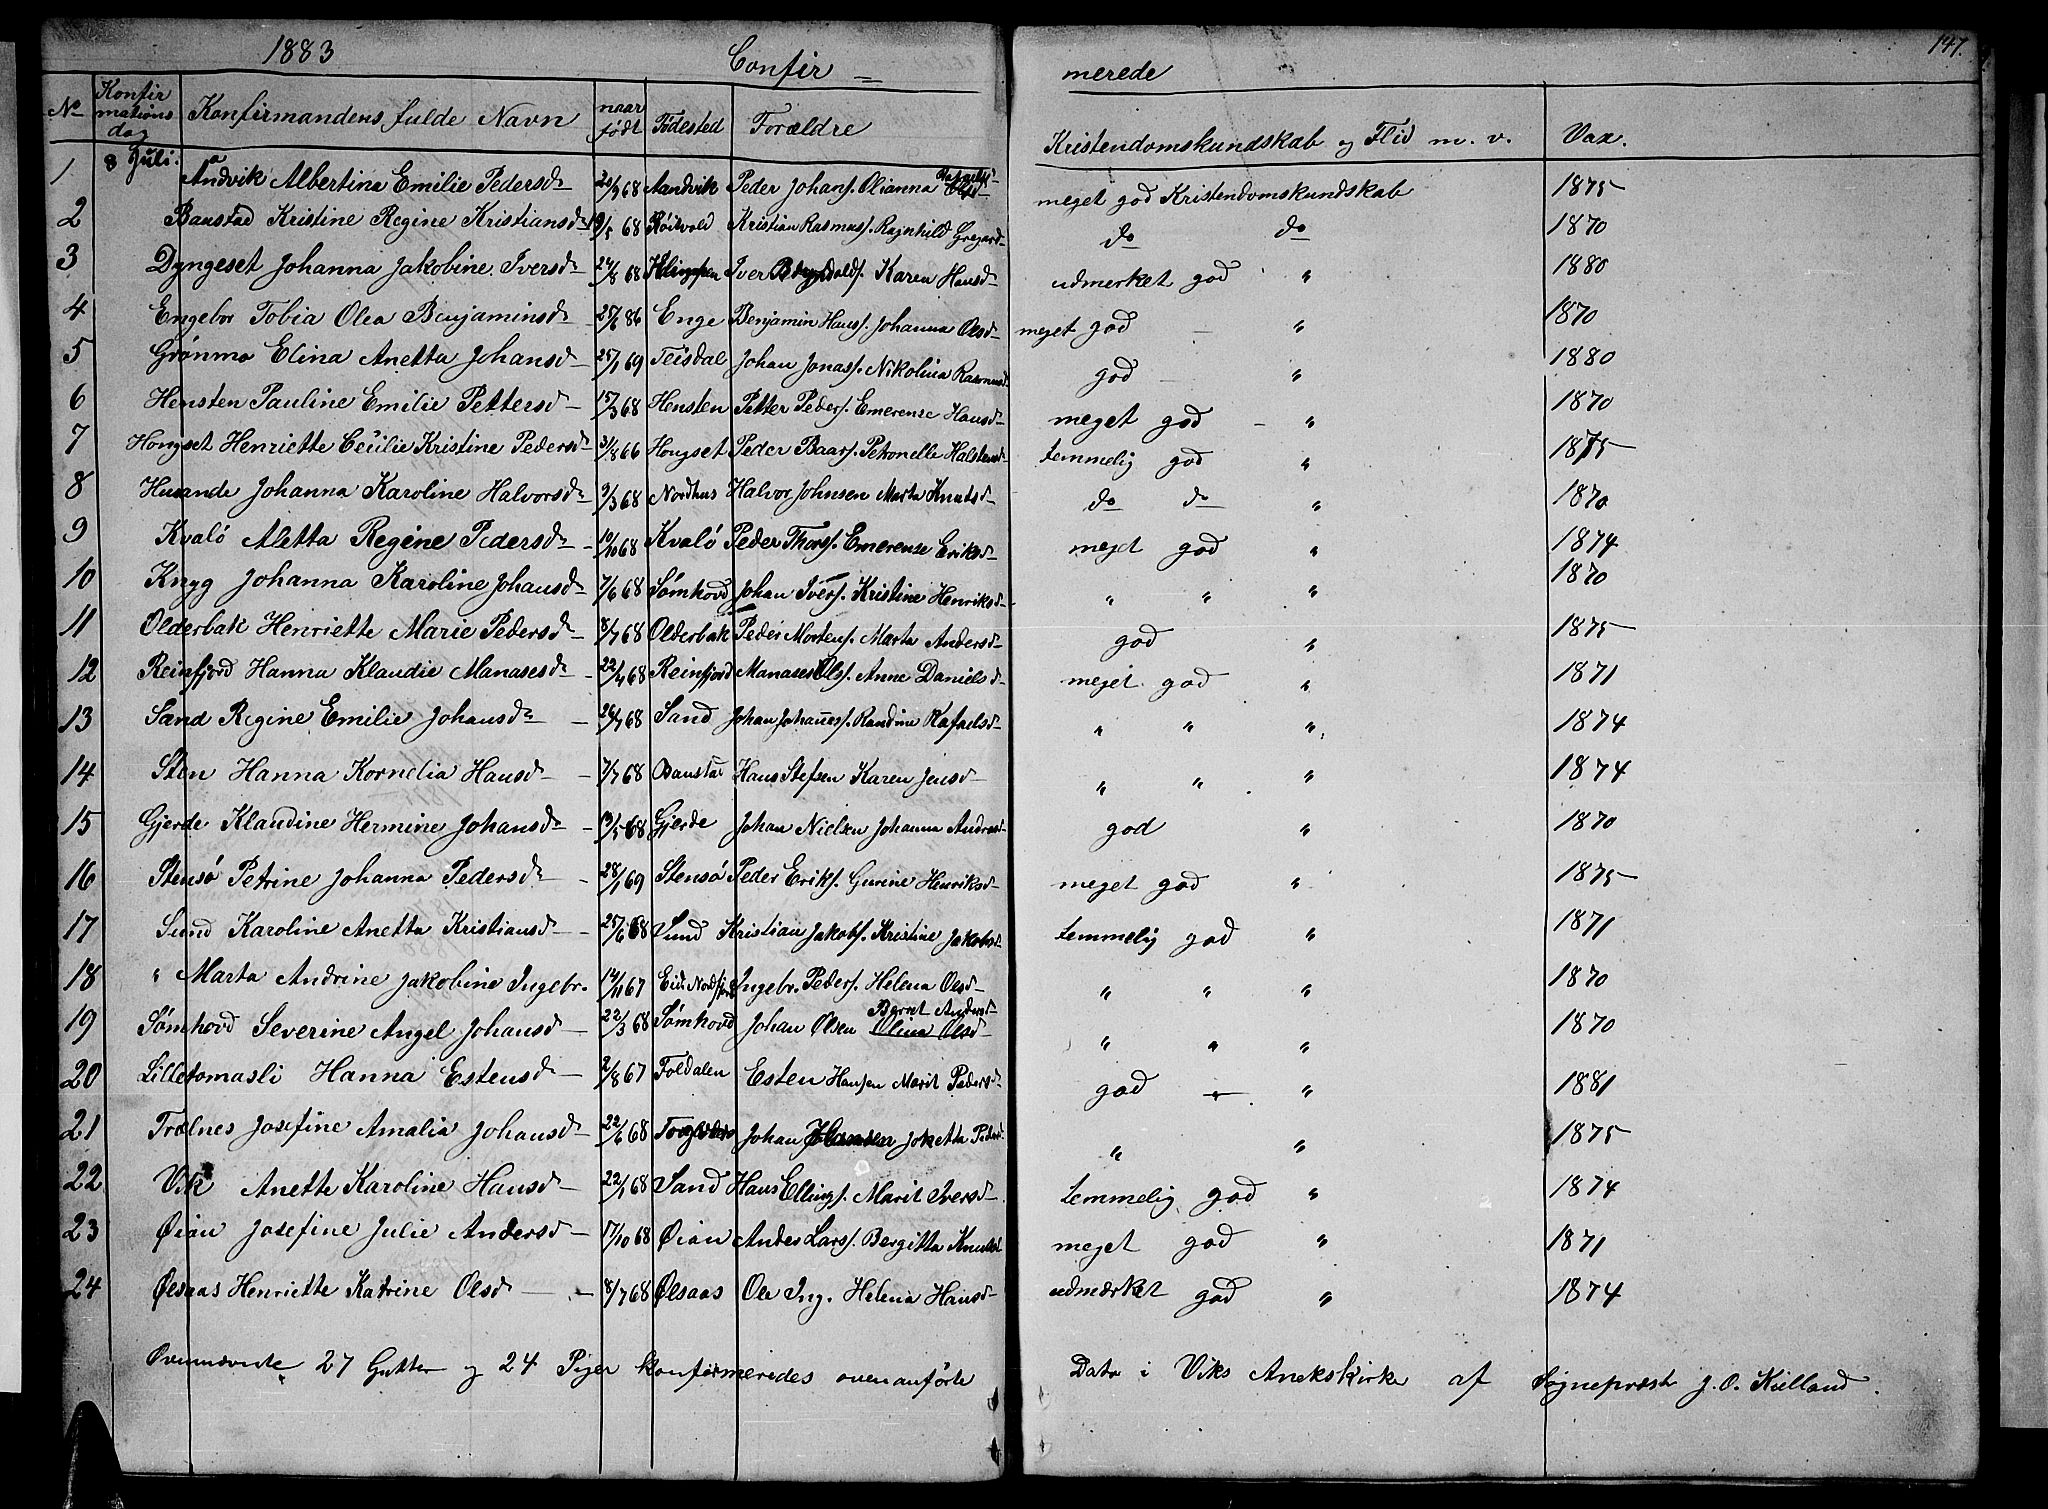 1883 Confir = merede 147.
No Konfirmations dag Konfirmandens fulde Navn naar født Fødested Forældre Kristendomskundskab og Flid m. v. Vax.
1 8 Juli. Andvik Albertina Emilie Pedersd 68 Aandvik Peder Johans. Olianna meget god Kristendomskundskab 1875
2 Baustad Kristine Regine Kristiansd 68 Røitvold Kristian Rasmus. Ragnhild Gregard do do 1870
3 Dyngeset Johanna Jakobine Iversd 24/8 68 Iver Karen Hansd udmerket god " 1880
4 Engebø Tobia Olea Benjaminsd 25/6 86 Enge Benjamin Hans. Johanna Olsd meget god - " 1870
5 Grønmo Elina Anetta Johansd 25/1 69 Teisdal Johan Jonas. Nikolina Rasmusd god - " 1880
6 Hensten Pauline Emilie Pettersd 15/3 68 Hensten Petter Peders. Emerense Hansd meget god - " 1870
7 Hongset Henriette Cecilie Kristine Pedersd 31/8 66 Hongset Peder Baars. Petronelle Halstensd temmelig god " 1875
8 Husande Johanna Karoline Halvorsd 9/3 68 Nordhus Halvor Johnsen Marta Knutsd do do " 1870
9 Kvalø Aletta Regine Pedersd 10/10 68 Kvalø Peder Thors. Emerense Eriksd meget god " 1874
10 Knyg Johanna Karoline Johansd 7/6 68 Sømhovd Johan Ivers. Kristine Henriksd " " " 1870
11 Olderbak Henriette Marie Pedersd 8/7 68 Olderbak Peder Mortens. Marta Andersd god " 1875
12 Reinfjord Hanna Klaudie Manasesd 22/4 68 Reinfjord Manases Ols. Anne Danielsd meget god " 1871
13 Sand Regine Emilie Johansd 26/7 68 Sand Johan Johannes. Randine Rafaelsd " " " 1874
14 Sten Hanna Kornelia Hansd 7/7 68 Baustad Hans Stefsen Karen Jensd " " " 1874
15 Gjerde Klaudine Hermine Johansd 19/5 68 Gjerde Johan Nielsen Johanna Andreasd god " 1870
16 Stensø Petrine Johanna Pedersd 28/1 69 Stensø Peder Eriks. Gurine Henriksd meget god " 1875
17 Sund Karoline Anetta Kristiansd 25/6 68 Sund Kristian Jakobs. Kristine Jakobsd temmelig god " 1871
18 " Marta Andrine Jakobine Ingebr. 14/11 67 Eid Nordfjord Ingebr. Peders. Helena Olsd " " " 1870
19 Sømhovd Severine Angel Johansd 22/3 68 Sømhovd Johan Olsen Berret Andersd Olina Olsd " " " 1870
20 Lilletomasli Hanna Estensd 2/8 67 Foldalen Esten Hansen Marit Pedersd god " " 1881
21 Trælnes Josefine Amalia Johansd 22/6 68 Johan Johansen Joketta Pedersd " " 1875
22 Vik Anette Karoline Hansd 22/1 68 Sand Hans Ellings. Marit Iversd temmelig god " 1874
23 Øian Josefine Julie Andersd 17/10 68 Øian Andes Lars. Bergitta Knutsd meget god " 1871
24 Ølsaas Henriette Katrine Olsd 8/7 68 Ølsaas Ole Ing. Helena Hansd udmærket god " 1874
Ovennævnte 27 Gutter og 24 Piger konfirmeredes ovenanførte Dato i Viks Anekskirke af Sogneprest J. O. Kielland.